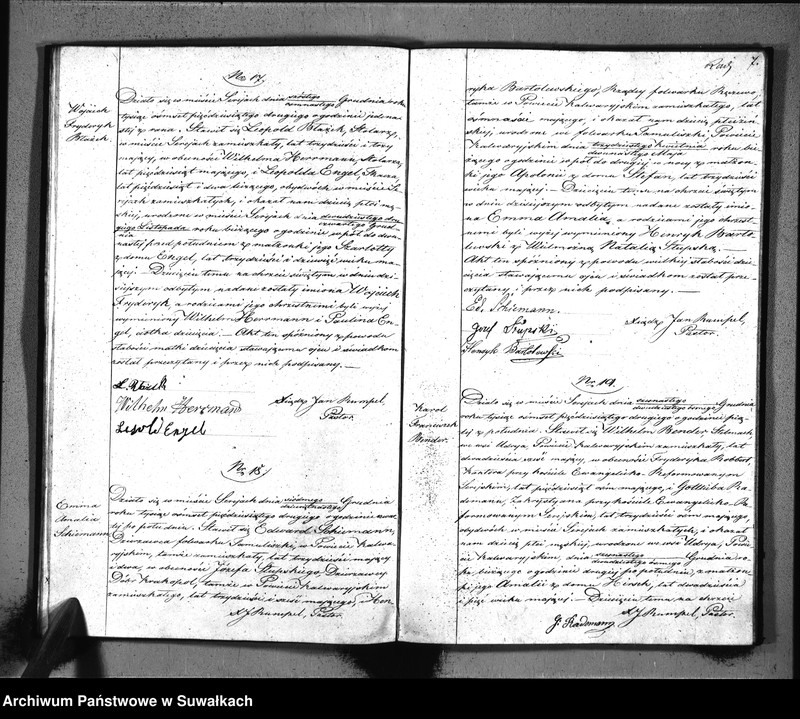 No 17.
Wojciech
Frydryk
Błażek.
Działo się w mieście Serejach dnia szóstego/osiemnastego Grudnia roku
tysiąc ośmset pięćdziesiątego drugiego o godzinie jede-
nastej z rana. Stawił się Leopold Błażek, Stolarz,
w mieście Serejach zamieszkały, lat trzydzieści i trzy
mający, w obecności Wilhelma Herrmann, Stolarza,
lat pięćdziesiąt mającego, i Leopolda Engel, Tkacza,
lat pięćdziesiąt i dwa liczącego, obydwóch w mieście Se-
rejach zamieszkałych, i okazał nam dziecię płci mę-
skiej, urodzone w mieście Serejach dnia dwudziestego dru-
giego Listopada/czwartego Grud-
nia roku bieżącego o godzinie wpół do dwu-
nastej przed południem z małżonki jego Skarlotty
z domu Engel, lat trzydzieści i dziewięć wieku ma-
jącej. — Dziecięciu temu na chrzcie świętym w dniu dzi-
siejszym odbytym nadane zostały imiona Wojciech
Frydryk, a rodzicami jego chrzestnemi byli wyżej
wymieniony Wilhelm Herrmann i Paulina En-
gel, ciotka dziecięcia. — Akt ten spóźniony z powodu
słabości matki dziecięcia stawającemu ojcu i świadkom
został przeczytany i przez nich podpisany. —
L. Błażek
Wilhelm Herrmann
Leopold Engel
Ksiądz Jan Rumpel,
Pastor.
No 18.
Emma
Amalia
Schiemann
Działo się w mieście Serejach dnia siódmego/dziewiętnastego Grudnia
roku tysiąc ośmset pięćdziesiątego drugiego o godzinie
po południu. Stawił się Edward Schiemann,
Dzierżawca folwarku Samuliszki, w Powiecie Kalwa-
ryjskim, tamże zamieszkały, lat trzydzieści mający
i dwa, w obecności Józefa Słupskiego, Dzierżawcy
Dóbr Krakopol, tamże w Powiecie Kalwaryjskim
zamieszkałego, lat trzydzieści i sześć mającego, i Hen-
X. J. Rumpel, Pastor.
7.
ryka Bartolewskiego, Rządcy folwarku
tamże w Powiecie Kalwaryjskim zamieszkałego, lat
mającego, i okazał nam dziecię płci żeń-
skiej, urodzone we folwarku Samuliszki, Powiecie
Kalwaryjskim dnia trzydziestego Kwietnia/dwunastego Maja roku bie-
żącego o godzinie wpół do drugiej w nocy z małżon-
ki jego Apolonii z domu Stefan, lat trzydzieści
wieku mającej. — Dziecięciu temu na chrzcie świętym
w dniu dzisiejszym odbytym nadane zostały imio-
na Emma Amalia, a rodzicami jego chrzest-
nemi byli wyżej wymieniony Henryk Barto-
lewski z Wielmożną Natalią Słupską. —
Akt ten spóźniony z powodu wielkiej słabości dzie-
cięcia stawającemu ojcu i świadkom został prze-
czytany i przez nich podpisany. —
Ed. Schiemann.
Józef Słupski
Henryk Bartolewski
Ksiądz Jan Rumpel,
Pastor.
No 19.
Karol
Franciszek
Bender.
Działo się w mieście Serejach dnia szesnastego/dwudziestego ósmego Grudnia
roku tysiąc ośmset pięćdziesiątego drugiego o godzinie pią-
tej z południa. Stawił się Wilhelm Bender, Stelmach
we wsi Udryja, Powiecie Kalwaryjskim zamieszkały, lat
dwadzieścia sześć mający, w obecności Frydryka
Kantora przy kościele Ewangelicko-Reformowanym
Serejskim, lat pięćdziesiąt mającego, i Gottlieba Ra-
demann, Zakrystyana przy kościele Ewangelicko-Re-
formowanym Serejskim, lat trzydzieści ośm mającego,
obydwóch w mieście Serejach zamieszkałych, i okazał
nam dziecię płci męskiej, urodzone we wsi Udryja, Powie-
cie Kalwaryjskim, dnia szesnastego/dwudziestego ósmego Grudnia ro-
ku bieżącego o godzinie drugiej po południu, z małżon-
ki jego Amalii z domu Hirsch, lat dwadzieścia
i pięć wieku mającej. Dziecięciu temu na chrzcie
X. J. Rumpel, Pastor.
G. Rademann
Archiwum Państwowe w Suwałkach